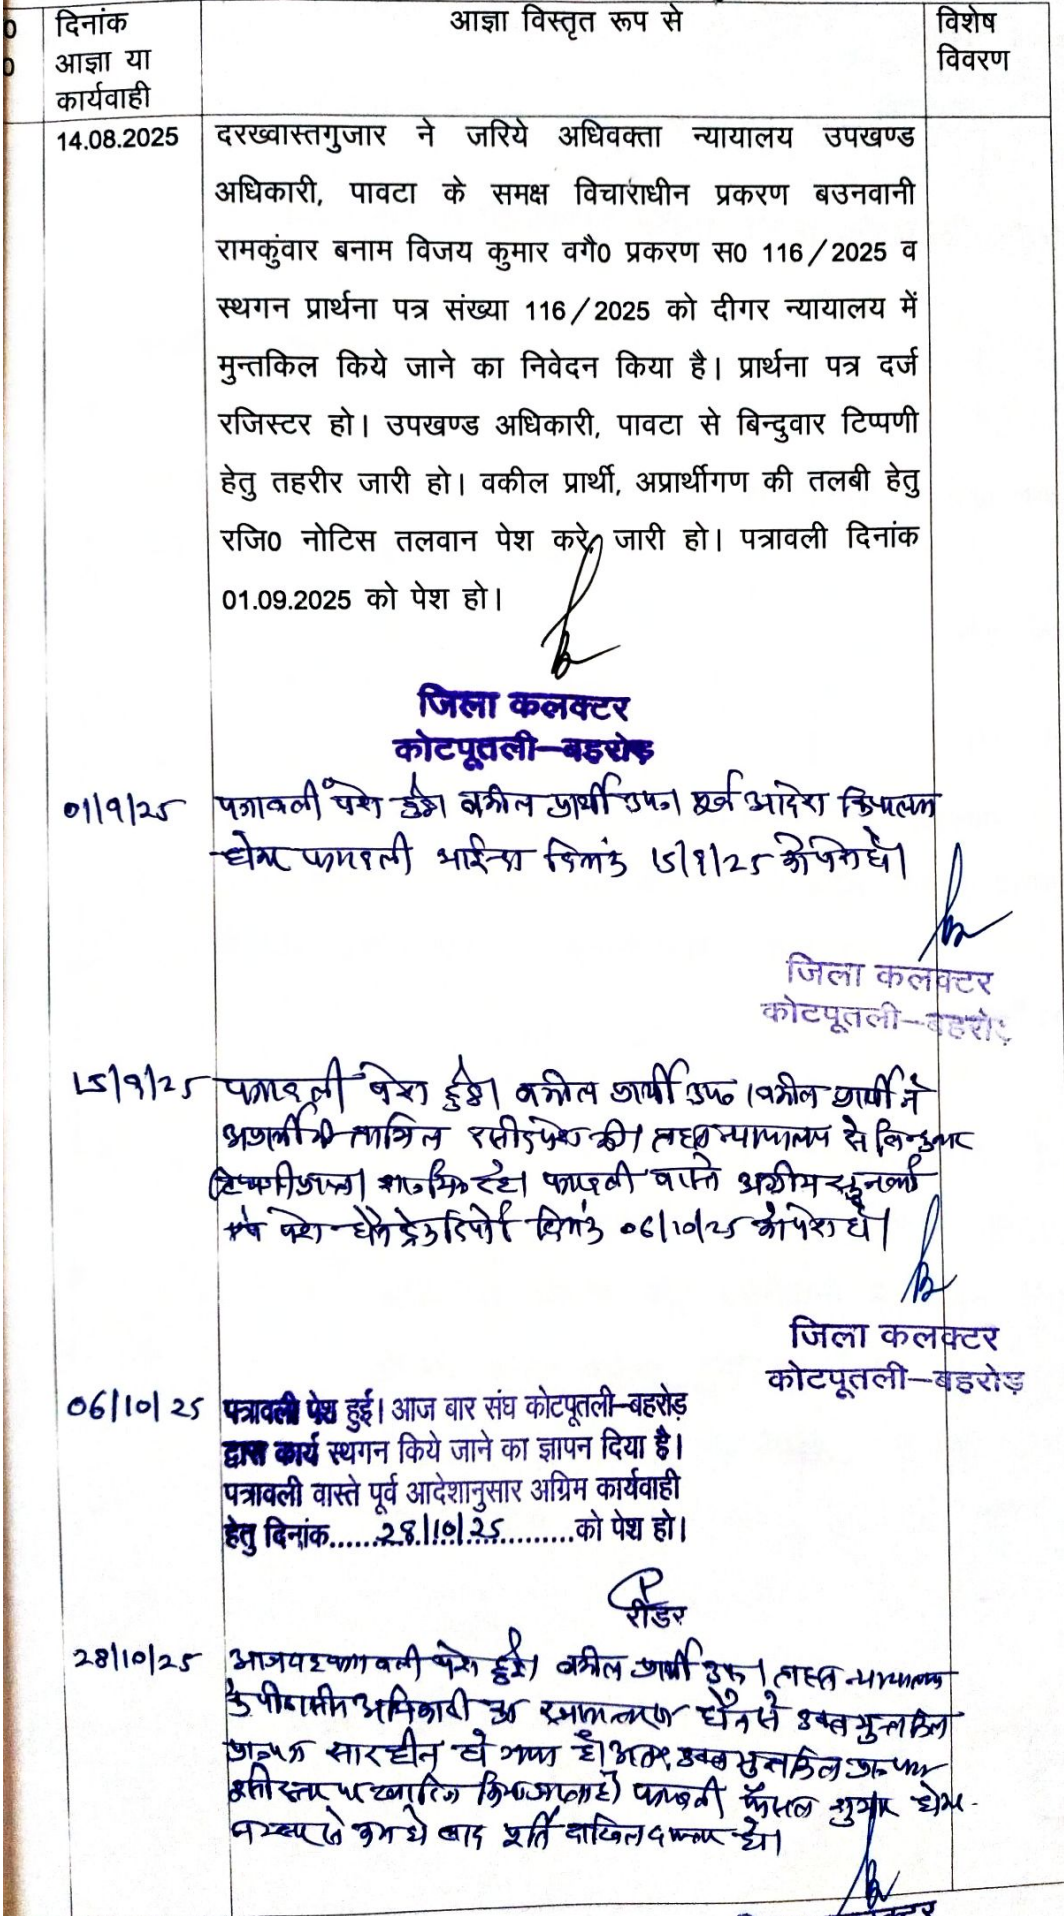 दिनांक
आज्ञा या
कार्यवाही
आज्ञा विस्तृत रूप से
विशेष
विवरण
14.08.2025
दरख्वास्तगुजार ने जरिये अधिवक्ता न्यायालय उपखण्ड
अधिकारी, पावटा के समक्ष विचाराधीन प्रकरण बउनवानी
रामकुंवार बनाम विजय कुमार वगै0 प्रकरण स0 116/2025 व
स्थगन प्रार्थना पत्र संख्या 116/2025 को दीगर न्यायालय में
मुन्तकिल किये जाने का निवेदन किया है। प्रार्थना पत्र दर्ज
रजिस्टर हो। उपखण्ड अधिकारी, पावटा से बिन्दुवार टिप्पणी
हेतु तहरीर जारी हो। वकील प्रार्थी, अप्रार्थीगण की तलबी हेतु
रजि0 नोटिस तलवान पेश करे, जारी हो। पत्रावली दिनांक
01.09.2025 को पेश हो।
जिला कलक्टर
कोटपूतली–बहरोड़
01/9/25 पत्रावली पेश हुई। वकील प्रार्थी उप0। पूर्व आदेश
पत्रावली आईन्दा दिनांक 15/9/25 को पेश हो।
जिला कलक्टर
कोटपूतली–बहरोड़
15/9/25 पत्रावली पेश हुई। वकील प्रार्थी उप0। वकील प्रार्थी ने
तामिल रसीद पेश की। न्यायालय से बिन्दुवार
टिप्पणी प्राप्त। शामिल रहे। पत्रावली वास्ते
पेश दिनांक 06/10/25 को पेश हो।
जिला कलक्टर
कोटपूतली–बहरोड़
06/10/25 पत्रावली पेश हुई। आज बार संघ कोटपूतली–बहरोड़
द्वारा कार्य स्थगन किये जाने का ज्ञापन दिया है।
पत्रावली वास्ते पूर्व आदेशानुसार अग्रिम कार्यवाही
हेतु दिनांक......28/10/25.........को पेश हो।
रीडर
28/10/25 आज पत्रावली पेश हुई। वकील प्रार्थी उप0। न्यायालय
के पीठासीन अधिकारी का स्थानान्तरण होने से उक्त मुन्तकिल
सारहीन हो गया है। अतः उक्त मुन्तकिल
इसी स्तर पर खारिज किया जाता है। पत्रावली फैसल शुमार होकर
बाद पूर्ति दाखिल दफ्तर हो।